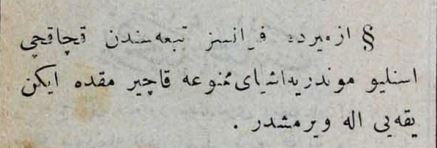 § ازميرده فرانسز تبعه‌سندن قچاقچى
اسنليو موندريه اشياى ممنوعه قاچيرمقده ايكن
يقه‌يى اله ويرمشدر .